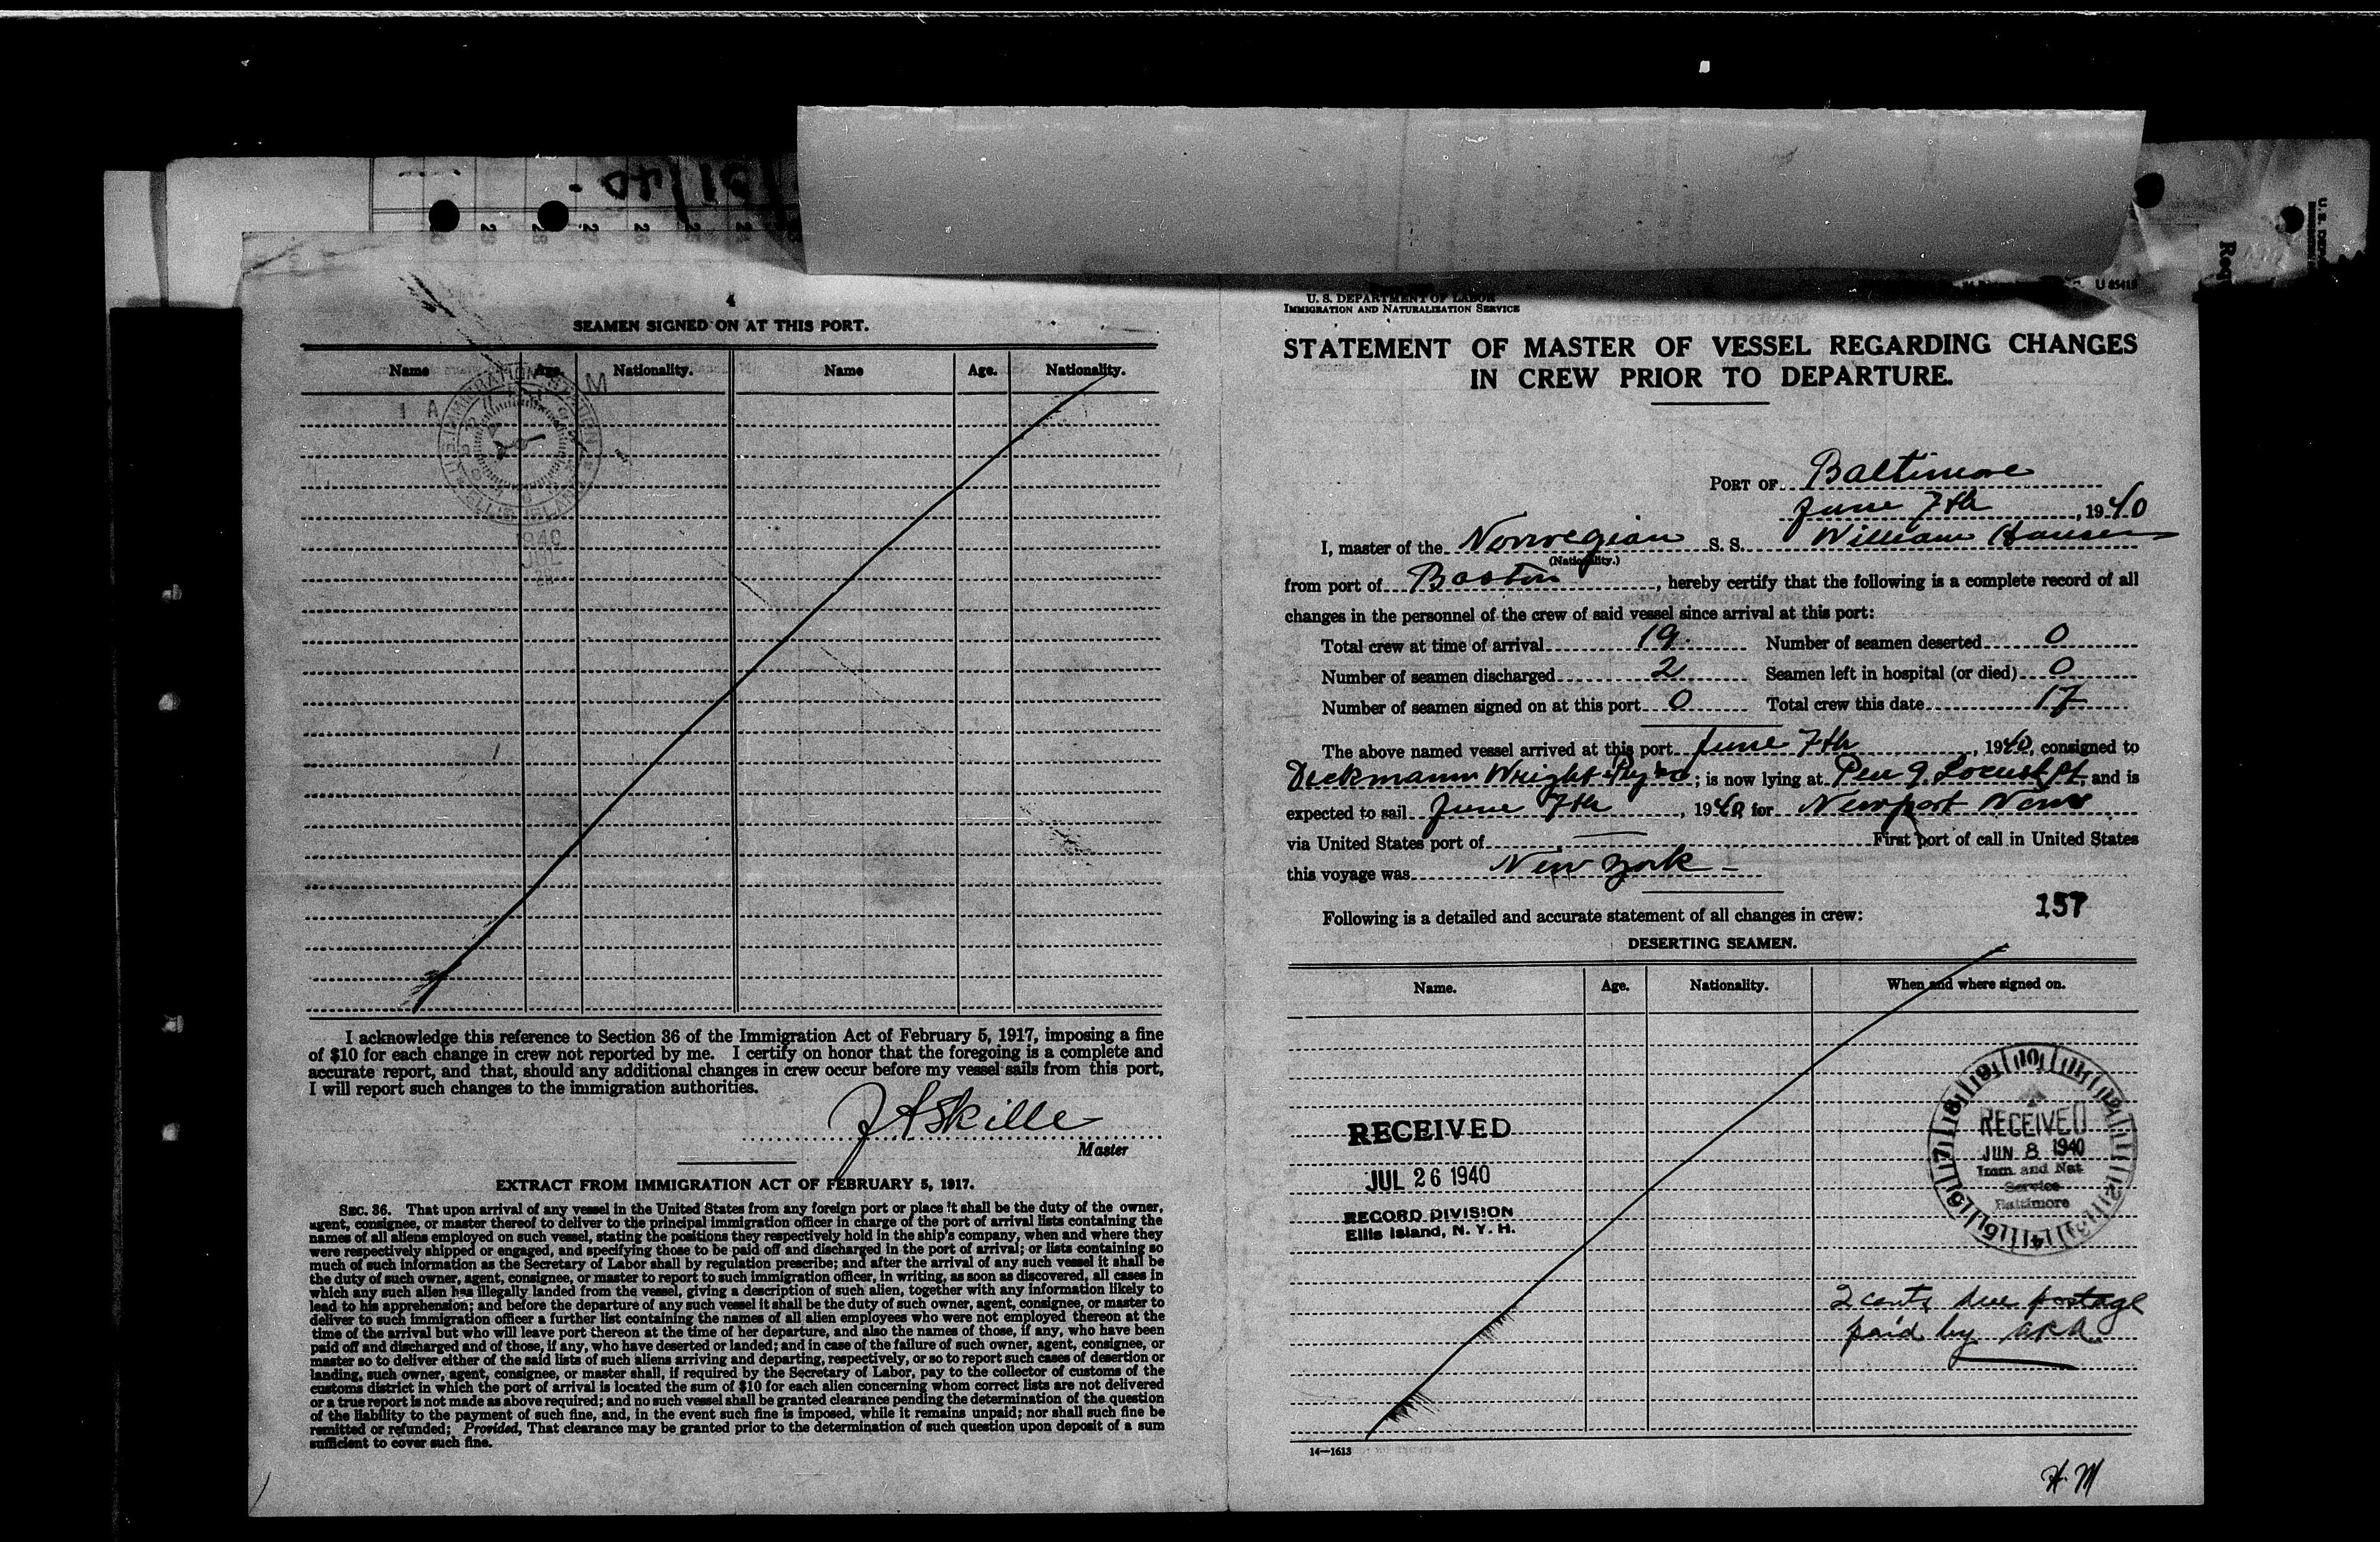 4
SEAMEN SIGNED ON AT THIS PORT.
Name Age. Nationality. Name Age. Nationality.
1940
JUL
I acknowledge this reference to Section 36 of the Immigration Act of February 5, 1917, imposing a fine
of $10 for each change in crew not reported by me. I certify on honor that the foregoing is a complete and
accurate report, and that, should any additional changes in crew occur before my vessel sails from this port,
I will report such changes to the immigration authorities.
Master
EXTRACT FROM IMMIGRATION ACT OF FEBRUARY 5, 1917.
SEC. 36. That upon arrival of any vessel in the United States from any foreign port or place it shall be the duty of the owner,
agent, consignee, or master thereof to deliver to the principal immigration officer in charge of the port of arrival lists containing the
names of all aliens employed on such vessel, stating the positions they respectively hold in the ship's company, when and where they
were respectively shipped or engaged, and specifying those to be paid off and discharged in the port of arrival; or lists containing so
much of such information as the Secretary of Labor shall by regulation prescribe; and after the arrival of any such vessel it shall be
the duty of such owner, agent, consignee, or master to report to such immigration officer, in writing, as soon as discovered, all cases in
which any such alien has illegally landed from the vessel, giving a description of such alien, together with any information likely to
lead to his apprehension; and before the departure of any such vessel it shall be the duty of such owner, agent, consignee, or master to
deliver to such immigration officer a further list containing the names of all alien employees who were not employed thereon at the
time of the arrival but who will leave port thereon at the time of her departure, and also the names of those, if any, who have been
paid off and discharged and of those, if any, who have deserted or landed; and in case of the failure of such owner, agent, consignee, or
master so to deliver either of the said lists of such aliens arriving and departing, respectively, or so to report such cases of desertion or
landing, such owner, agent, consignee, or master shall, if required by the Secretary of Labor, pay to the collector of customs of the
customs district in which the port of arrival is located the sum of $10 for each alien concerning whom correct lists are not delivered
or a true report is not made as above required; and no such vessel shall be granted clearance pending the determination of the question
of the liability to the payment of such fine, and, in the event such fine is imposed, while it remains unpaid; nor shall such fine be
remitted or refunded; Provided, That clearance may be granted prior to the determination of such question upon deposit of a sum
sufficient to cover such fine.
U. S. DEPARTMENT OF LABOR
IMMIGRATION AND NATURALIZATION SERVICE
STATEMENT OF MASTER OF VESSEL REGARDING CHANGES
IN CREW PRIOR TO DEPARTURE.
PORT OF Baltimore
June 7th, 1940
I, master of the Norwegian S. S. William Hansen
(Nationality.)
from port of Boston, hereby certify that the following is a complete record of all
changes in the personnel of the crew of said vessel since arrival at this port:
Total crew at time of arrival 19. Number of seamen deserted 0
Number of seamen discharged 2 Seamen left in hospital (or died) 0
Number of seamen signed on at this port 0 Total crew this date 17
The above named vessel arrived at this port June 7th, 1940, consigned to
Dickmann Wright & Pugh; is now lying at Pier 9 Locust Pt and is
expected to sail June 7th, 1940 for Newport News
via United States port of First port of call in United States
this voyage was New York
Following is a detailed and accurate statement of all changes in crew: 157
DESERTING SEAMEN.
Name. Age. Nationality. When and where signed on.
RECEIVED
JUL 26 1940
RECORD DIVISION
Ellis Island, N. Y. H.
RECEIVED
JUN 8 1940
Imm. and Nat.
Service
Baltimore
2 cents due postage
paid by
14—1613
H. M